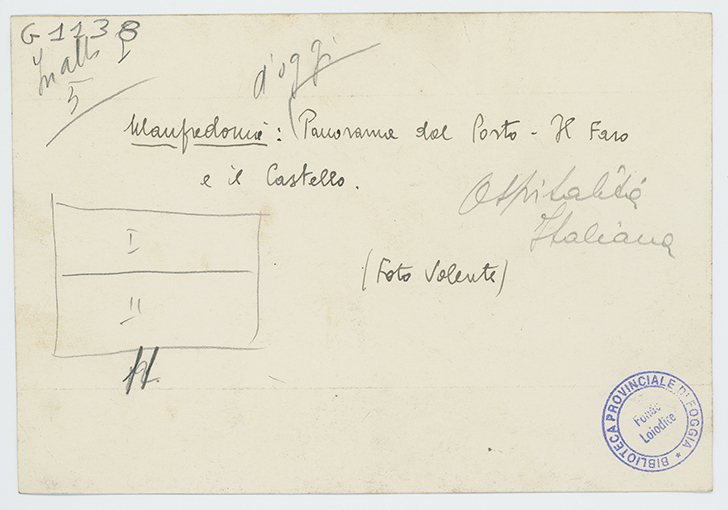 G 1138
I
5
d'oggi
Manfredonia: Panorama dal Porto - Il Faro
e il Castello.
Ospitalità
Italiana
I
II
(Foto Valente)
BIBLIOTECA PROVINCIALE DI FOGGIA *
Fondo
Loiodice